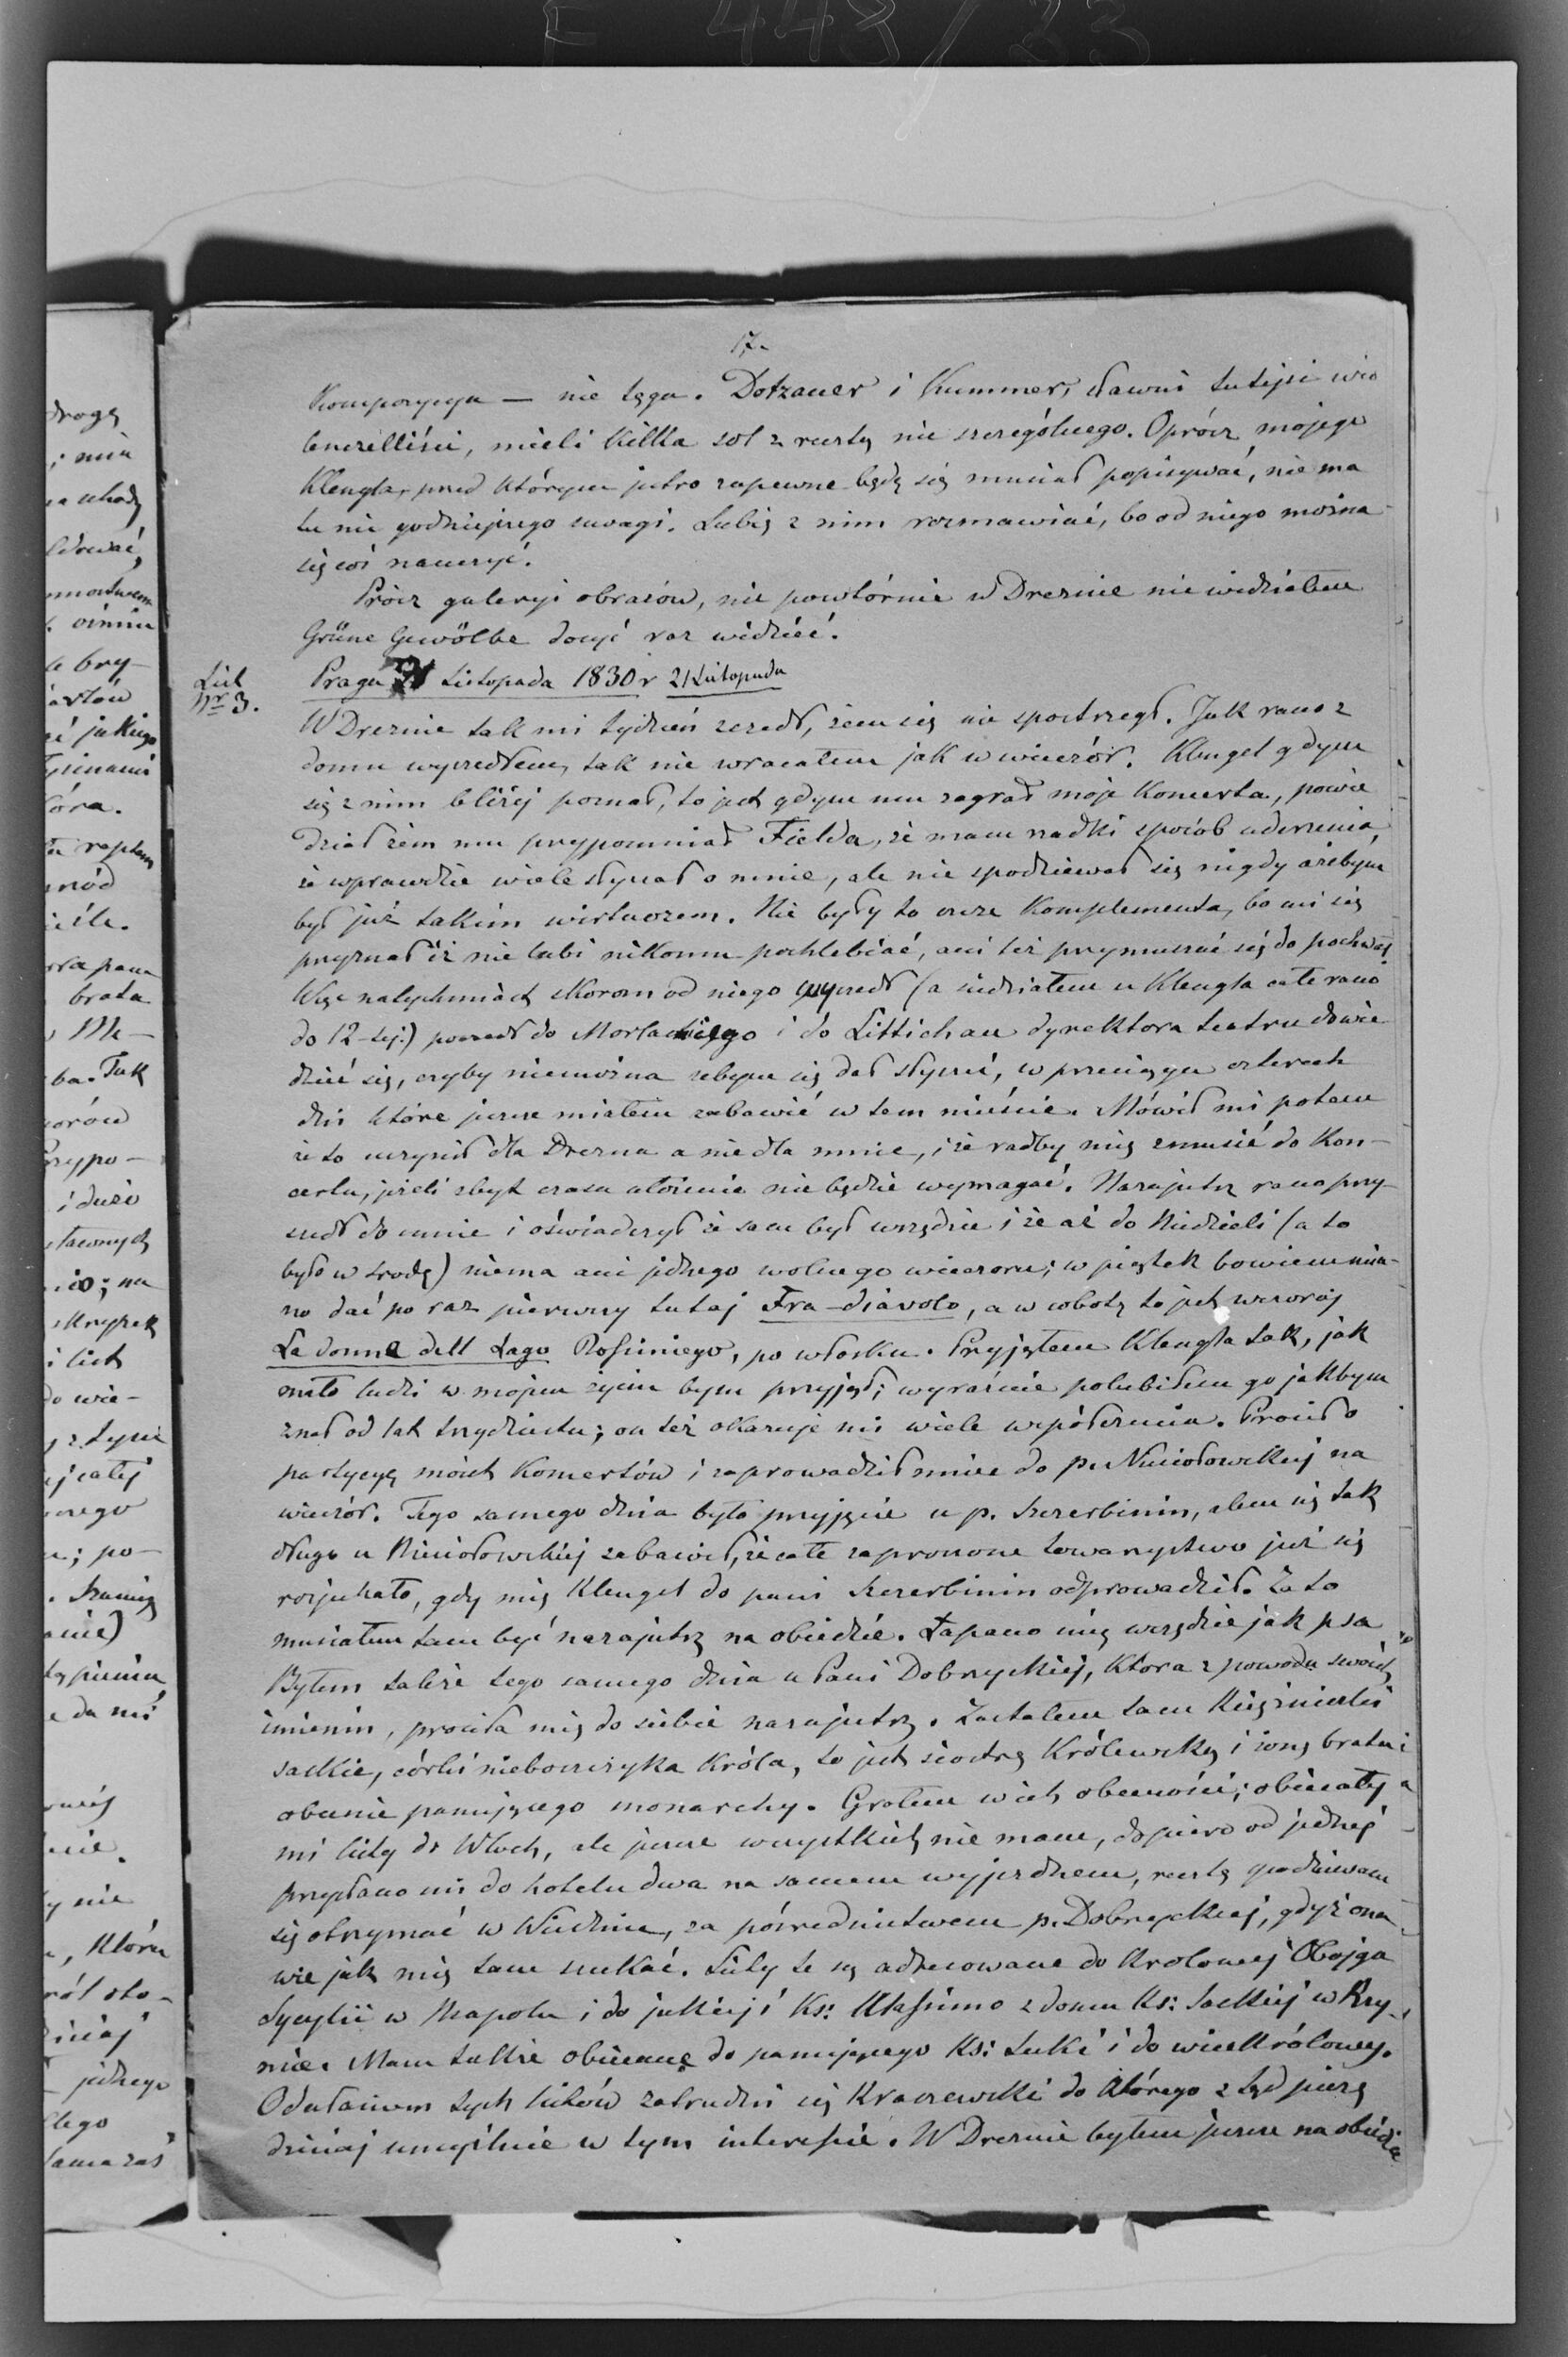 F 448/23
17.
Kompozycya — nie tęga. Dotzauer i Kummer, sławni tutejsi wio
lonczelliści, mieli kilka sol z resztą nic szczególnego. Oprócz mojego
Klengla, przed którym jutro zapewne będę się musiał popisywać, nie ma
tu nic godniejszego uwagi. Lubię z nim rozmawiać, bo od niego można
się coś nauczyć.
Prócz galeryi obrazów, nic powtórnie w Dreznie nie widziałem
Grüne Gewölbe dosyć raz widzieć.
List
Nr 3.
Praga 21 Listopada 1830 r 21 Listopada
W Dreznie tak mi tydzień zszedł, żem się nie spostrzegł. Jak rano z
domu wyszedłem, tak nie wracałem jak w wieczór. Klengel gdym
się z nim bliżej poznał, to jest gdym mu zagrał moje Koncerta, powie
dział żem mu przypomniał Fielda, że mam rzadki sposób uderzenia,
że wprawdzie wiele słyszał o mnie, ale nie spodziewał się nigdy ażebym
był już takim wirtuozem. Nie były to czcze Komplementa, bo mi się
przyznał iż nie lubi nikomu pochlebiać, ani też przymuszać się do pochwał
Więc natychmiast skorom od niego wyszedł (a siedziałem u Klengla całe rano
do 12-tej.) poszedł do Morlackiego i do Littichau dyrektora teatru dowie
dzieć się, czyby niemożna żebym się dał słyszeć, w przeciągu czterech
dni które jeszcze miałem zabawić w tem mieście. Mówił mi potem
że to uczynił dla Drezna a nie dla mnie, i że radby mię zmusić do Kon-
certu, jeżeli zbyt czasu ułożenie nie będzie wymagać. Nazajutrz rano przy-
szedł do mnie i oświadczył że sam był wszędzie i że aż do Niedzieli (a to
było w środę) niema ani jednego wolnego wieczoru; w piątek bowiem mia-
no dać po raz pierwszy tutaj Fra-diavolo, a w sobotę to jest wczoraj
La donna dell Lago Rossiniego, po włosku. Przyjąłem Klengla tak, jak
mało ludzi w mojem życiu bym przyjął; wyraźnie polubiłem go jakbym
znał od lat trzydziestu; on też okazuje mi wiele współczucia. Prosił o
partycyę moich Koncertów i zaprowadził mnie do p. Niesiołowskiej na
wieczór. Tego samego dnia było przyjęcie u p. Szczerbinin, alem się tak
długo u Niesiołowskiej zabawił, że całe zaproszone towarzystwo już się
rozjechało, gdy mię Klengel do pani Szczerbinin odprowadził. Za to
musiałem tam być nazajutrz na obiedzie. Łapano mię wszędzie jak psa
Byłem także tego samego dnia u Pani Dobrzyckiej, która z powodu swoich
imienin, prosiła mię do siebie nazajutrz. Zastałem tam Księżniczki
saskie, córki nieboszczyka króla, to jest siostrę Królewską i żonę brata
obecnie panującego monarchy. Grałem w ich obecności; obiecały
mi listy do Włoch, ale jeszcze wszystkich nie mam, dopiero od jednej
przysłano mi do hotelu dwa na samem wyjezdnem, resztę spodziewam
się otrzymać w Wiedniu, za pośrednictwem p. Dobrzyckiej, gdyż ona
wie jak mię tam szukać. Listy te są adresowane do Królowej Obojga
Sycylii w Neapolu i do jakiejś Ks: Ulassimo z domu Ks: Saskiej w Rzy-
mie. Mam także obiecane do panującego Ks: Luki i do wicekrólowej.
Odesłaniem tych listów zatrudni się Kraszewski do którego z tąd piszę
dzisiaj umyślnie w tym interesie. W Dreznie byłem jeszcze na obiedzie